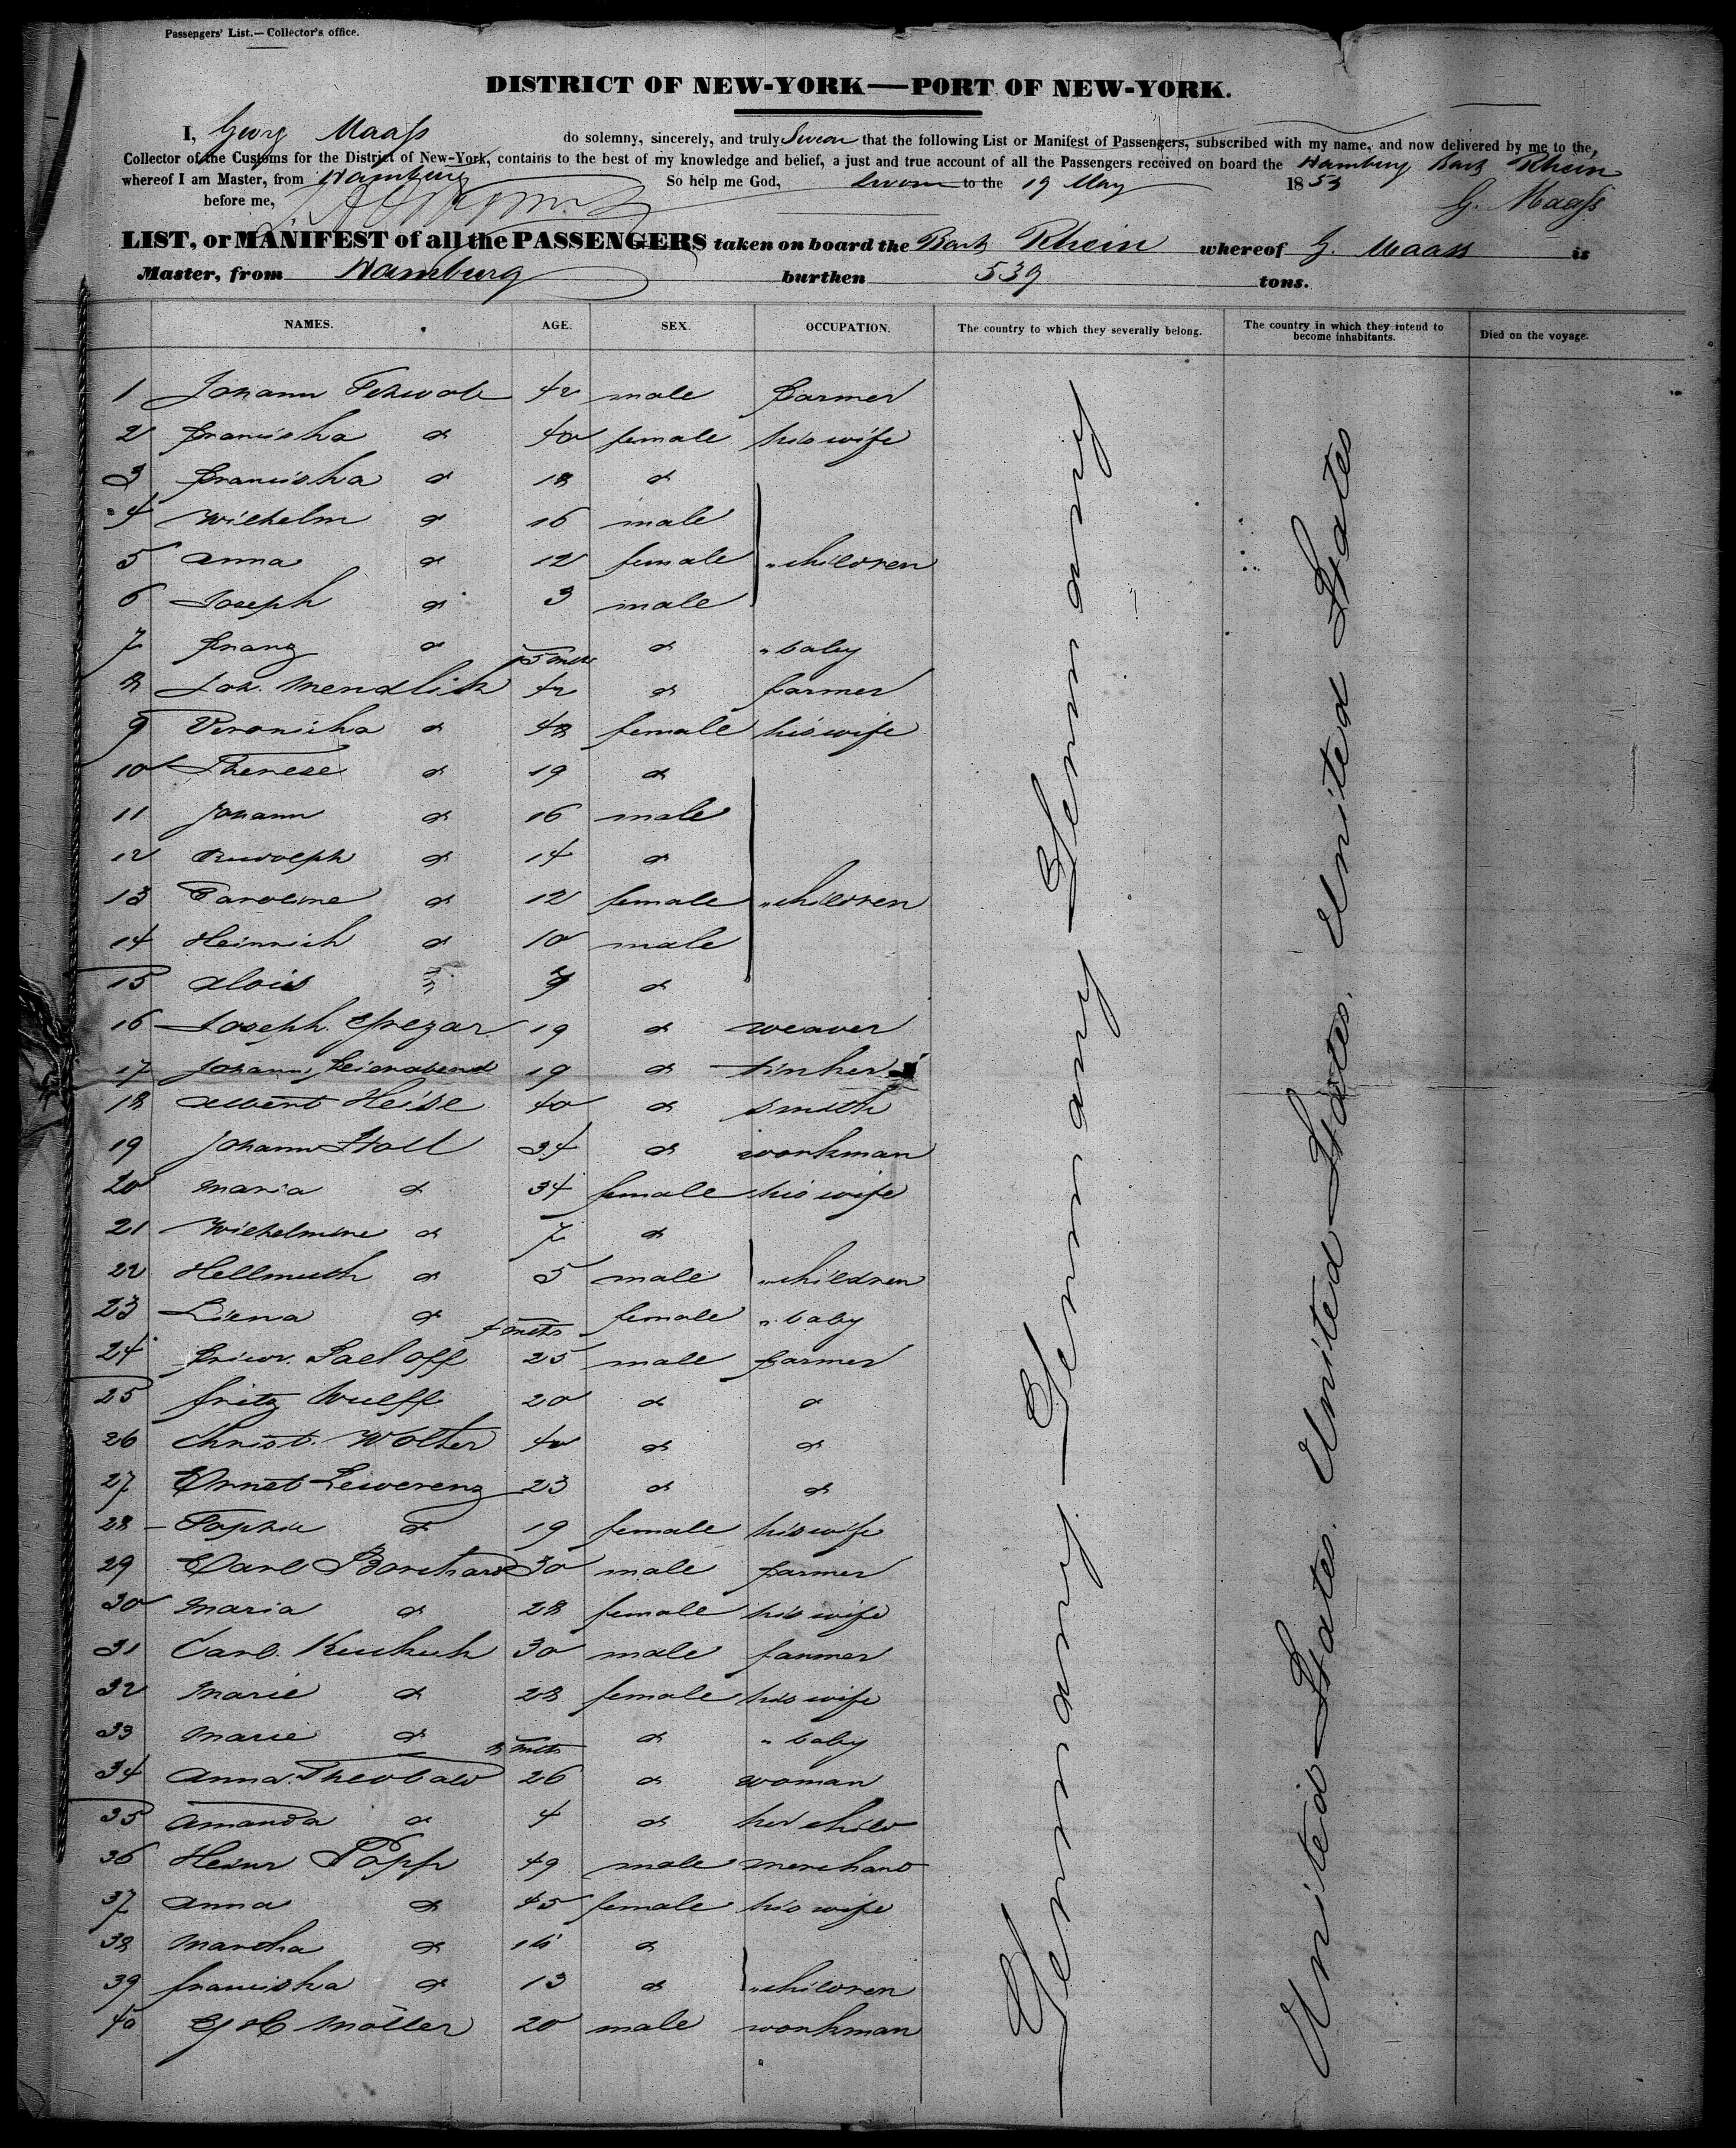 Passengers' List.—Collector's office.
DISTRICT OF NEW-YORK—PORT OF NEW-YORK.
I, Georg Maass do solemny, sincerely, and truly Swear that the following List or Manifest of Passengers, subscribed with my name, and now delivered by me to the,
Collector of the Customs for the District of New-York, contains to the best of my knowledge and belief, a just and true account of all the Passengers received on board the Hamburg Bark Rhein
whereof I am Master, from Hamburg So help me God, sworn to the 19 May 1853
before me, G. Maass
LIST, or MANIFEST of all the PASSENGERS taken on board the Bark Rhein whereof G. Maass is
Master, from Hamburg burthen 539 tons.
NAMES. AGE. SEX. OCCUPATION. The country to which they severally belong. The country in which they intend to become inhabitants. Died on the voyage.
1 Johann 42 male farmer
2 Franciska d 40 female his wife
3 Franciska d 18 d
4 Wilhelm d 16 male
5 Anna d 12 female " children
6 Joseph d 3 male
7 Franz d mts d " baby
8 Joh. Mendlich 42 d farmer
9 Veronicka d 48 female his wife
10 Therese d 19 d
11 Johann d 16 male
12 Rudolph d 14 d
13 Caroline d 12 female " children
14 Heinrich d 10 male
15 Alois d
16 Joseph 19 d weaver
17 Johann Feierabend 19 d tinker
18 Albert Heise 40 d smith
19 Johann Stoll 34 d workman
20 Maria d 34 female his wife
21 Wilhelmine d 7 d
22 Hellmuth d 5 male " children
23 Liena d 4 mts female " baby
24 Friedr. Saeloff 25 male farmer
25 Fritz Wulff 20 d d
26 Christ. Wolter 40 d d
27 Ernst Lewerenz 23 d d
28 Sophie d 19 female his wife
29 Carl Borchard 30 male farmer
30 Maria d 28 female his wife
31 Carl Kukuk 30 male farmer
32 Marie d 28 female his wife
33 Marie d 8 mts d " baby
34 Anna Theobald 26 d woman
35 Amanda d 4 d her child
36 Heinr Popp 49 male merchand
37 Anna d 45 female his wife
38 Martha d 16 d
39 Franciska d 13 d " children
40 Möller 20 male workman
Germany Germany Germany Germany
United States. United States. United States